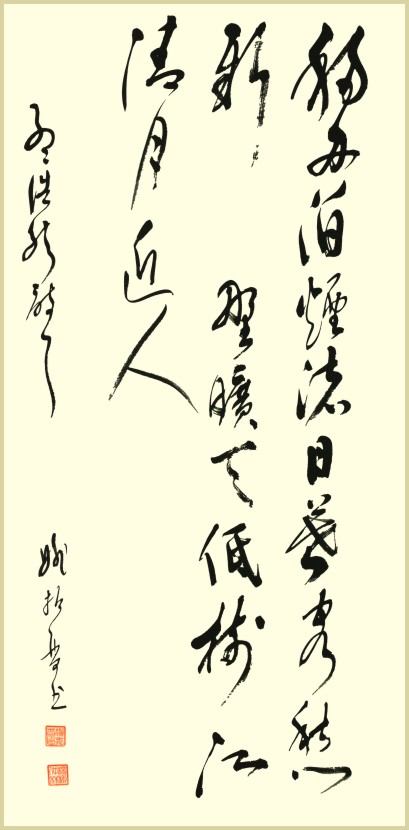 移舟泊煙渚日暮客愁
新野曠天低樹江
清月近人
孟浩然詩
姚 書